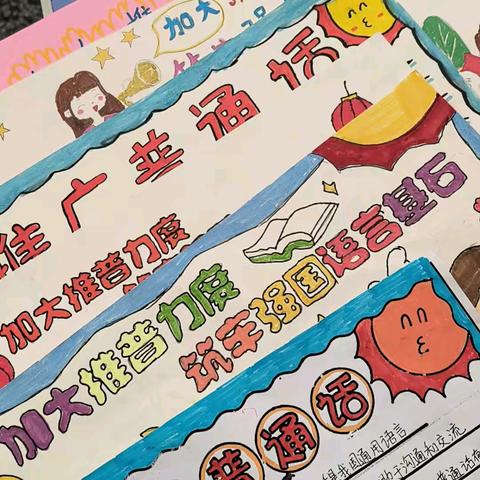 加大
推广普通话
加大推普力度
加大推普力度
筑牢强国语言基石
普通话
是我国通用语言
助于沟通和交流